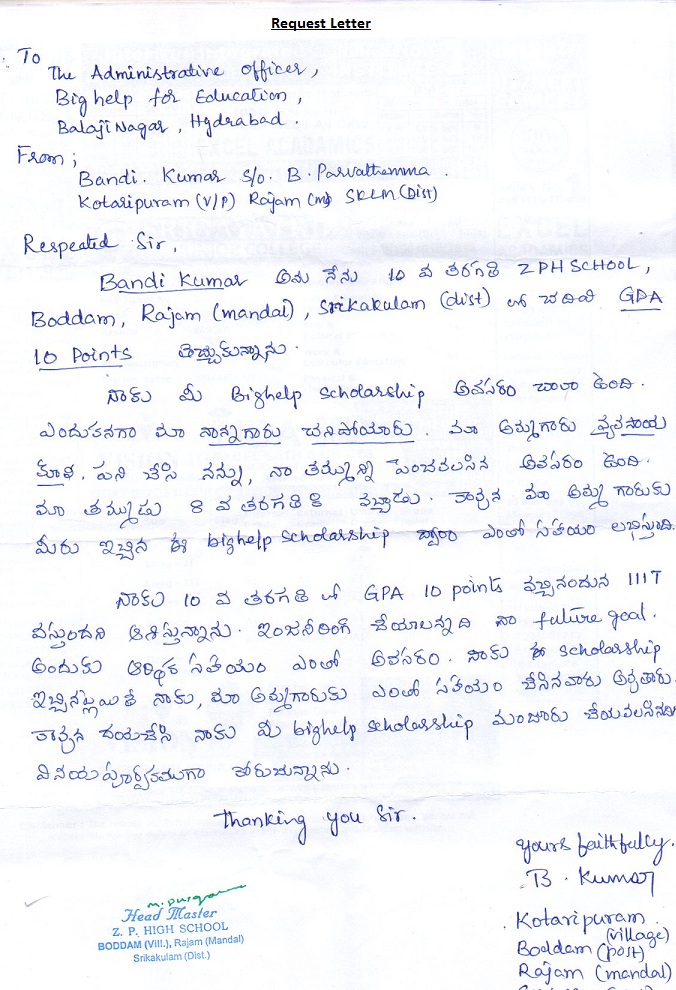 Request Letter
To
The Administrative officer,
Big help for Education,
Balaji Nagar, Hydrabad.
From;
Bandi. Kumar s/o. B. Parvattamma.
Kotaripuram (V/P) Rajam (m) SKLM (Dist)
Respeated Sir,
Bandi Kumar అను నేను 10 వ తరగతి ZPH SCHOOL,
Boddam, Rajam (mandal), Srikakulam (dist) లో చదివి GPA
10 Points తెచ్చుకున్నాను.
నాకు మీ Bighelp scholarship అవసరం చాలా ఉంది.
ఎందుకనగా మా నాన్నగారు చనిపోయారు. మా అమ్మగారు వ్యవసాయ
కూలి. పని చేసి నన్ను, నా తమ్మున్ని పెంచవలసిన అవసరం ఉంది.
మా తమ్ముడు 8 వ తరగతికి వచ్చాడు. కావున మా అమ్మ గారుకు
మీరు ఇచ్చిన ఈ bighelp scholarship ద్వారా ఎంతో సహయం లభిస్తుంది.
నాకు 10 వ తరగతి లో GPA 10 points వచ్చినందున IIIT
వస్తుందని ఆశిస్తున్నాను. ఇంజనీరింగ్ చేయాలన్నది నా future goal.
అందుకు ఆర్థిక సహయం ఎంతో అవసరం. నాకు ఈ scholarship
ఇచ్చినట్లయితే నాకు, మా అమ్మగారుకు ఎంతో సహయం చేసినవారు అర్వతారు.
కావున దయచేసి నాకు మీ bighelp scholarship మంజూరు చేయవలసినది
వినయపూర్వకముగా కోరుచున్నాను.
Thanking you Sir.
yours faithfully.
B. Kumar
Kotaripuram
(village)
Boddam (post)
Rajam (mandal)
Head Master
Z. P. HIGH SCHOOL
BODDAM (Vill.), Rajam (Mandal)
Srikakulam (Dist.)